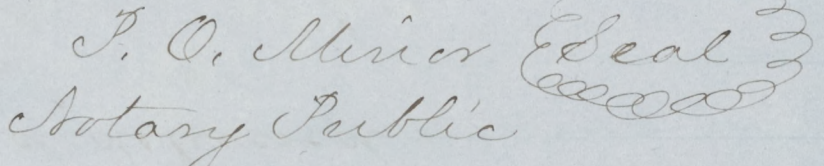 P. O. Minor Seal
Notary Public